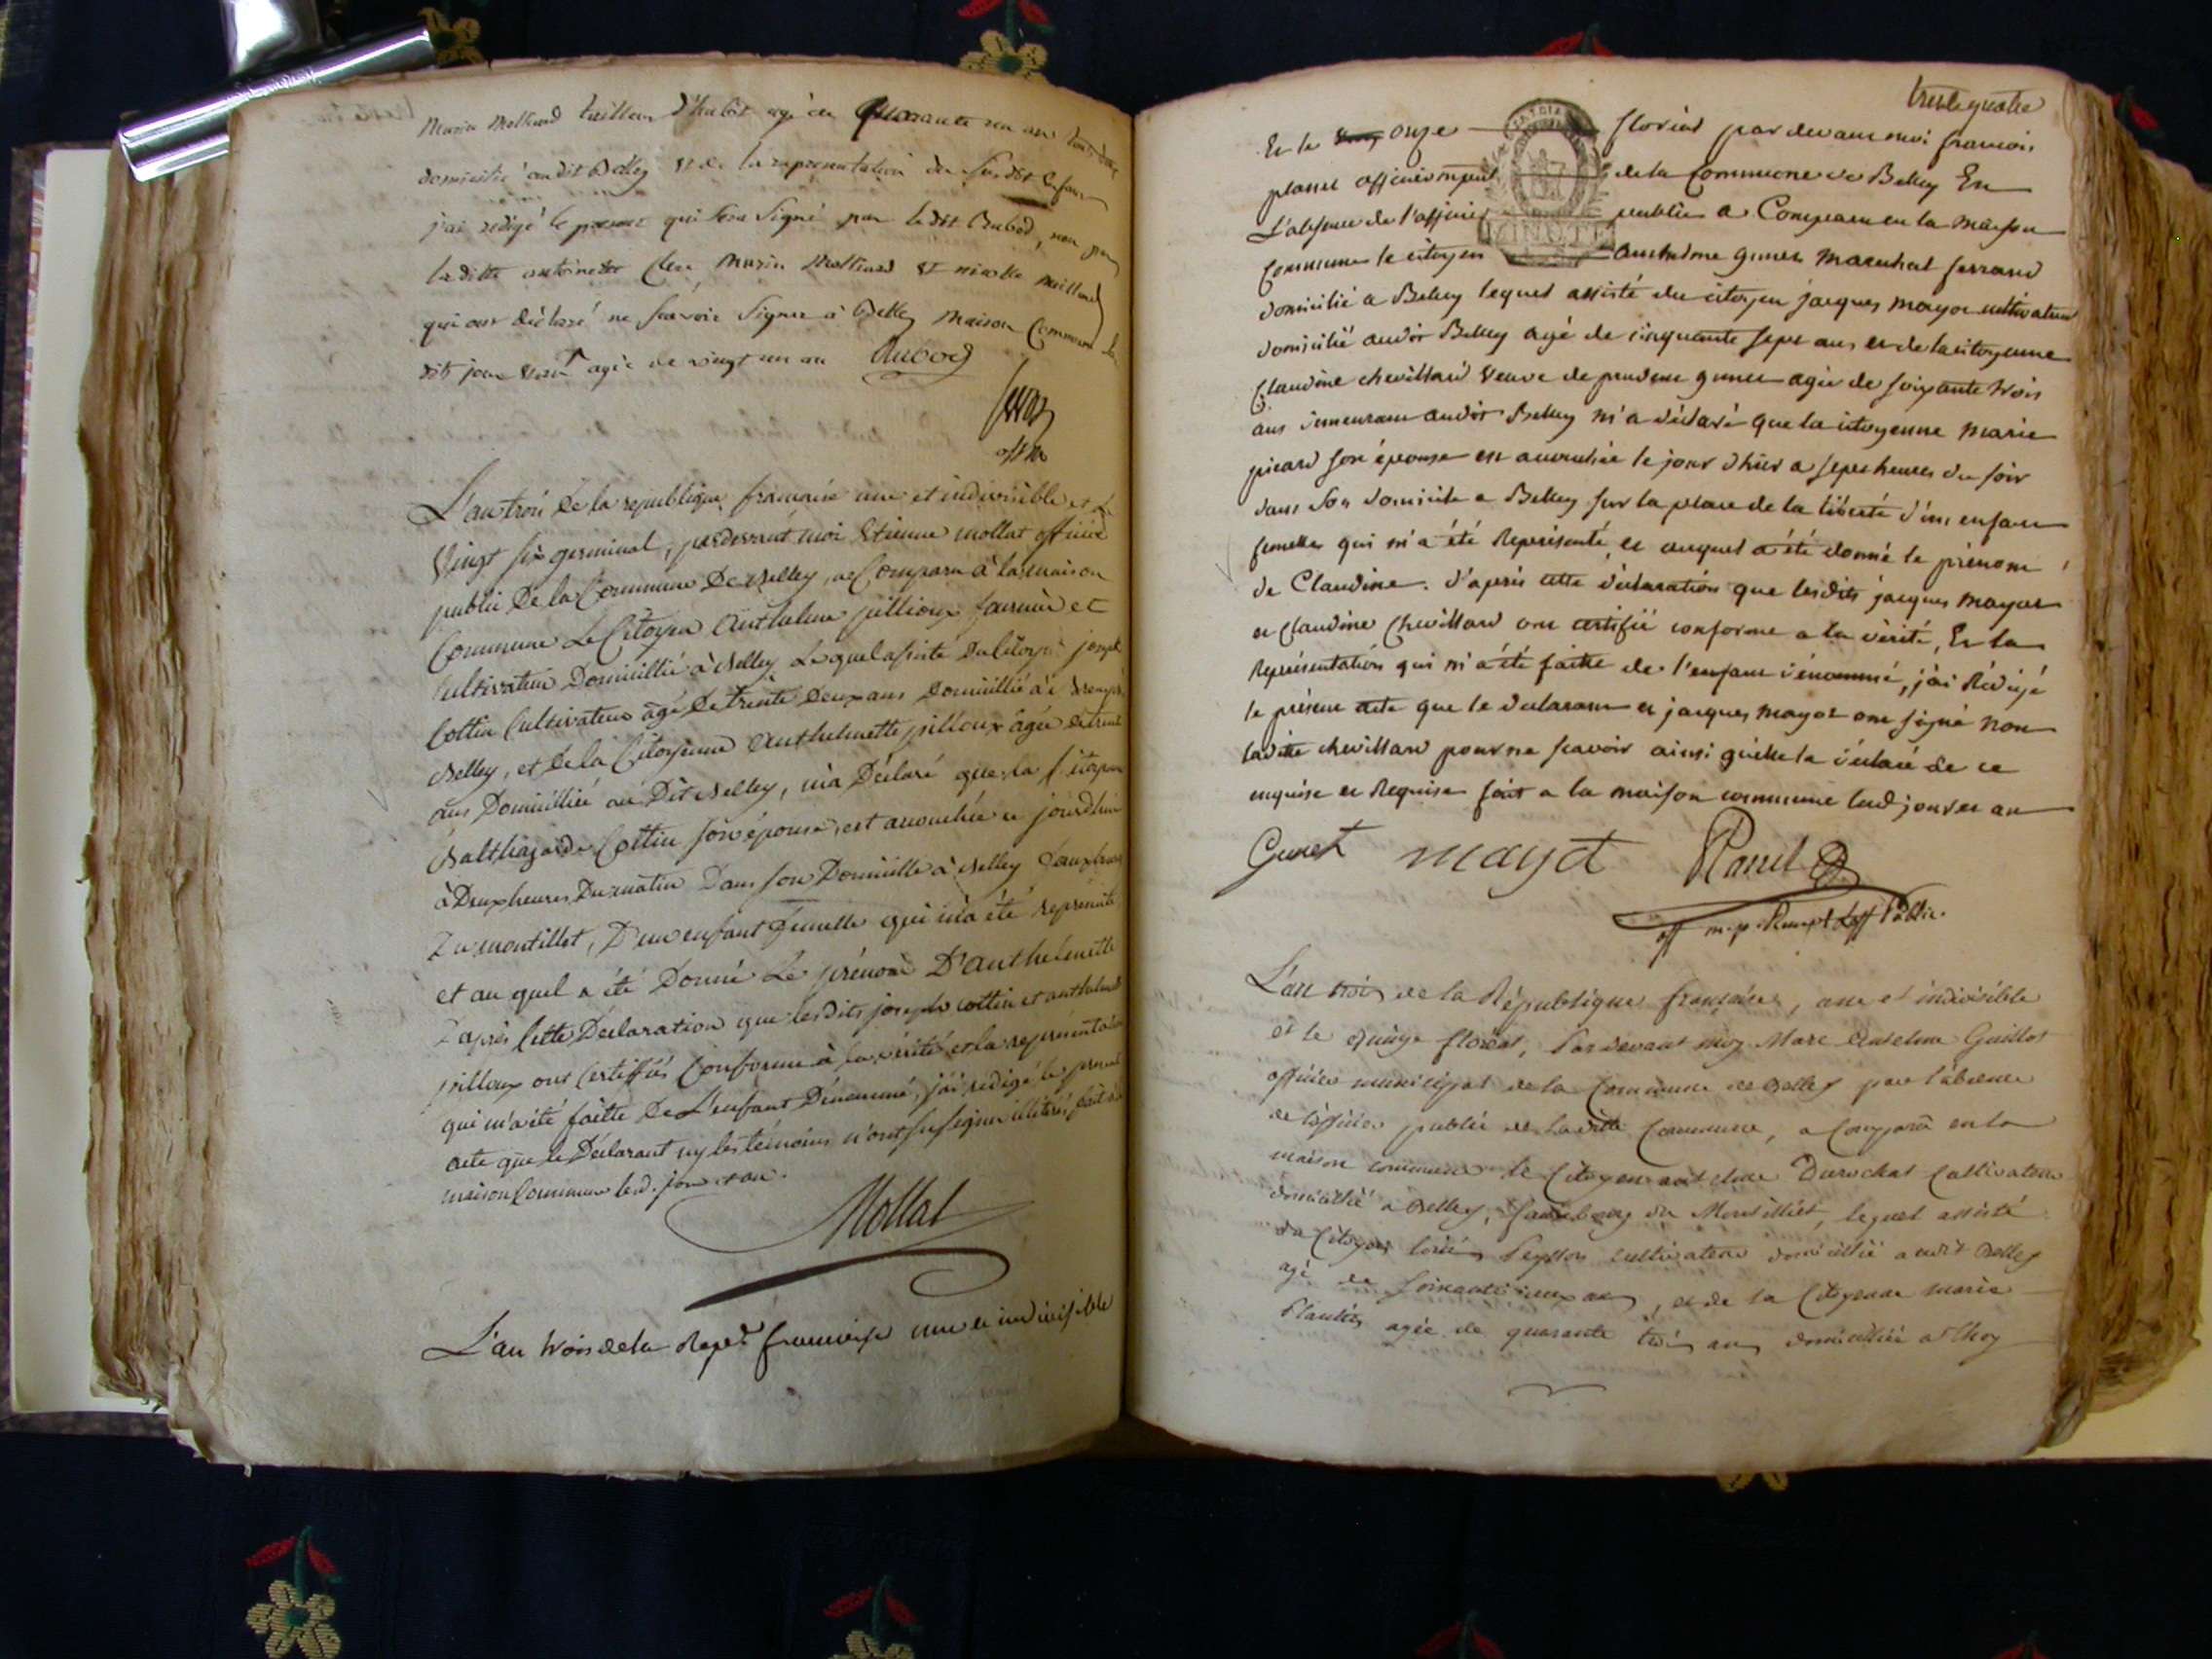 Marin Molliard tailleur d'habit agé de Quarante un an
domicilié audit Belley et de la representation du susdit Enfant
j'ai redigé le present qui sera signé par ledit Aubod, non par
ladite antoinette Marin Molliard et
qui ont déclaré ne sçavoir signer à Belley Maison Commune
dits jour agée de vingt un an Aubod
off
L'an trois de la republique francaise une et indivisible et le
Vingt six germinal, pardevant moi Etienne mollat officier
public De la Commune De Belley, a Comparu à la maison
Commune Le Citoyen Anthelme pilloux fournier et
Cultivateur Domicillié à Belley Lequel assisté Du Citoyen joseph
Cottin Cultivateur âgé De trente Deux ans Domicillié à
Belley, et De la Citoyenne Anthelmette pilloux âgée de trente
ans Domicilliée au Dit Belley, m'a Déclaré que la Citoyenne
Balthazarde Cottin son épouse, est accouchée ce jourdhui
à Deux heures Du matin Dans son Domicille à Belley fauxbourg
Du montillet, D'un enfant femelle qui m'a été representé
et au quel a été Donné Le prénom D'anthelmette
D'après Cette Déclaration que lesdits joseph cottin et anthelmette
pilloux ont Certiffiés Conforme à la vérité, et la représentation
qui m'a été faitte De L'enfant Dénommé, j'ai redigé le present
acte que le Déclarant ny les témoins n'ont su signer illiterés fait en
maison Commune led. jour et an.
Mollat
L'an trois de la Repe francaise une et indivisible
trente quatre
Et le onze floréal par devant moi francois
planet officier mpal de la Commune de Belley En
L'absence de l'officier public a Comparu en la maison
Commune le citoyen anthelme gunet marechal ferrand
domicilié a Belley lequel assisté du citoyen jacques mayot cultivateur
domicilié audit Belley agé de cinquante sept ans et de la citoyenne
Claudine chevillard Veuve de gunet agée de soixante trois
ans demeurant audit Belley m'a déclaré que la citoyenne marie
picard son épouse est accouchée le jour d'hier a sept heures du soir
dans son domicile a Belley sur la place de la liberté d'un enfant
femelle qui m'a été Représenté, et auquel a été donné le prénom
de Claudine. d'après cette déclaration que lesdits jacques mayot
et Claudine Chevillard ont certifié conforme a la vérité, Et la
Représentation qui m'a été faitte de l'enfant dénommé, j'ai Rédigé
le présent acte que le déclarant et jacques mayot ont signé non
ladite chevillard pour ne scavoir ainsi qu'elle la déclaré de ce
enquise et Requise fait a la maison commune lesd jour et an
Gunet mayot Planet
off m.p. Loff Public.
L'an trois de la République française, une et indivisible
et le quinze floréal, Pardevant moy Marc Antelme Guillot
officier municipal de la Commune de Belley par l'absence
de l'officier public de la ditte Commune, a Comparu en la
maison commune le Citoyen antelme Durochat Cultivateur
domicillié a Belley, fauxbourg du Montilliet, lequel assisté
du Citoyen Peysson cultivateur domicillié audit Belley
agé de soixante deux ans, et de la Citoyenne marie
Plantin agée de quarante trois ans domicilliée